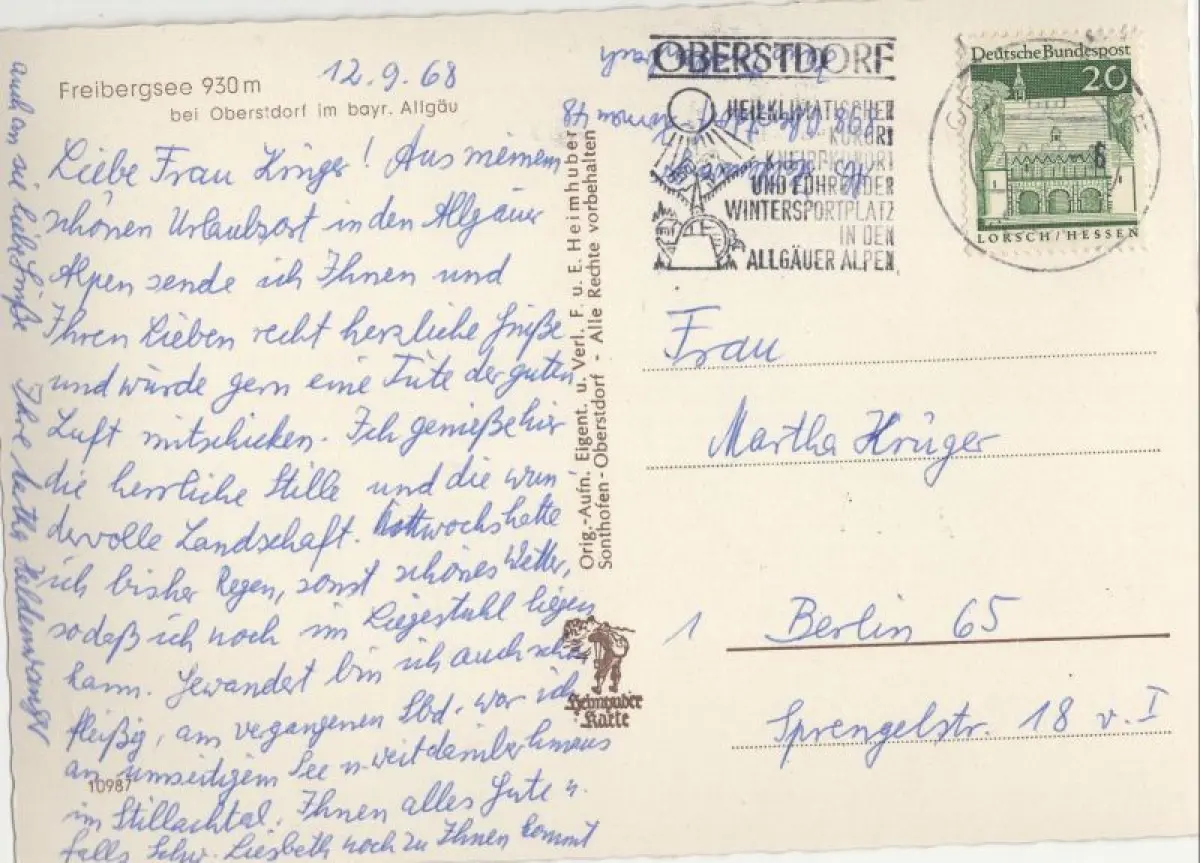 Freibergsee 930 m
bei Oberstdorf im bayr. Allgäu
12.9.68
Liebe Frau Krüger! Aus meinem
schönen Urlaubsort in den Allgäuer
Alpen sende ich Ihnen und
Ihren Lieben recht herzliche Grüße
und würde gern eine Tüte der guten
Luft mitschicken. Ich genieße hier
die herrliche Stille und die wun
dervolle Landschaft. Mittwochs hatte
ich bisher Regen, sonst schönes Wetter,
sodaß ich noch im Liegestuhl liegen
kann. Gewandert bin ich auch schon
fleißig, am vergangenen Sbd. war ich
am umseitigem See u. weit darüber hinaus
im Stillachtal. Ihnen alles Gute u.
falls Schw. Liesbeth noch zu Ihnen kommt
auch an sie liebe Grüße
Ihre
10987
Orig.-Aufn. Eigent. u. Verl. F. u. E. Heimhuber
Sonthofen - Oberstdorf - Alle Rechte vorbehalten
Heimhuber
Karte
OBERSTDORF
HEILKLIMATISCHER
KURORT
KNEIPPKURORT
UND FÜHRENDER
WINTERSPORTPLATZ
IN DEN
ALLGÄUER ALPEN
Deutsche Bundespost
20
LORSCH/HESSEN
Frau
Martha Krüger
1 Berlin 65
Sprengelstr. 18 v. I